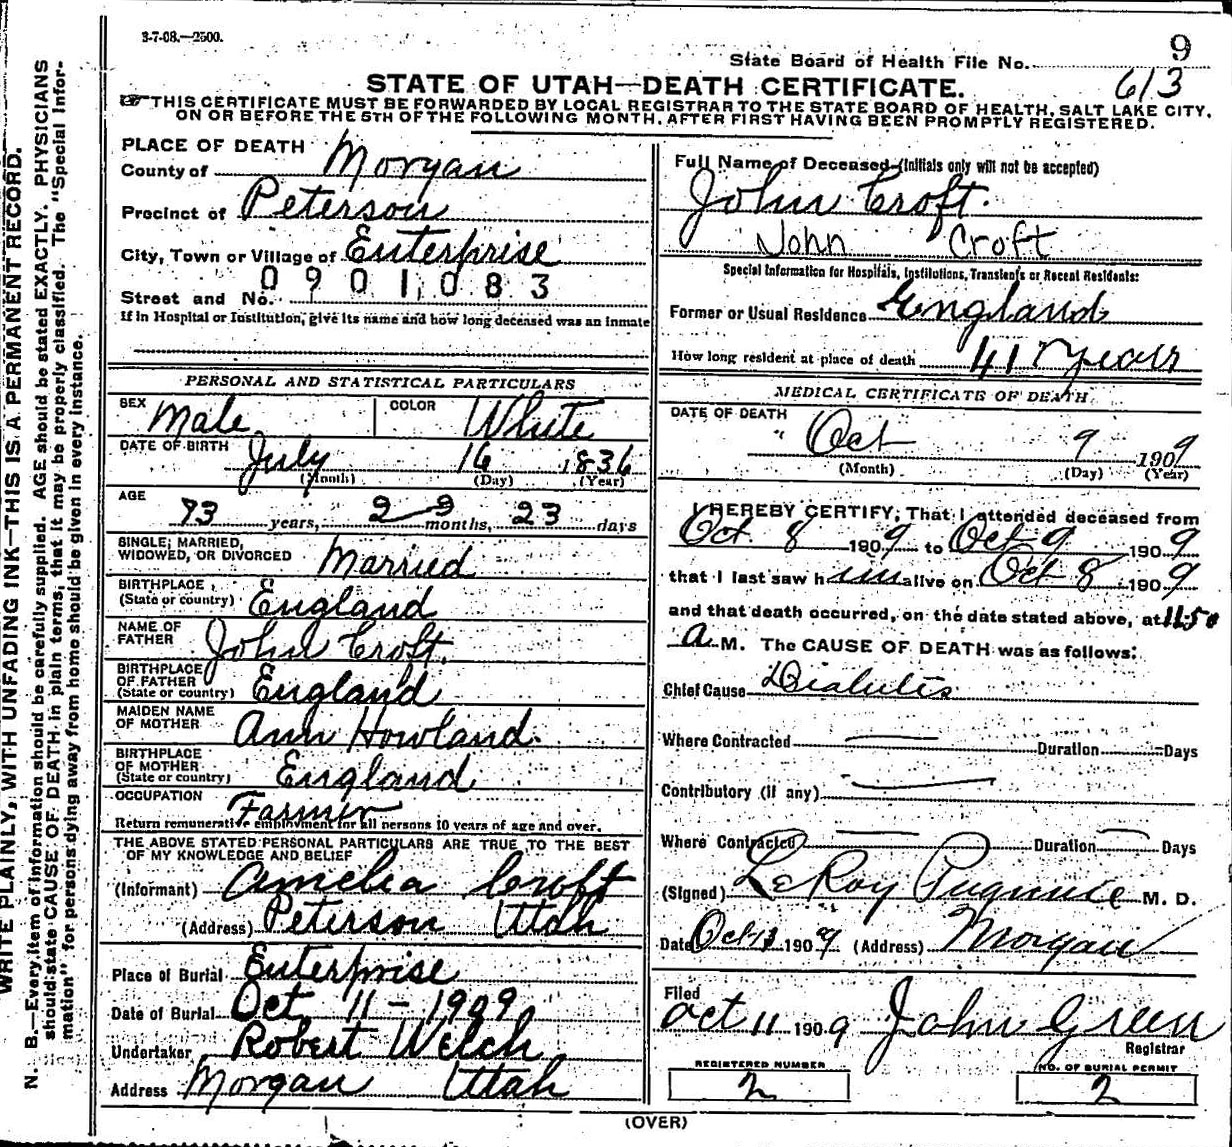 3-7-08.—2500.
9
State Board of Health File No.
613
STATE OF UTAH—DEATH CERTIFICATE.
☞THIS CERTIFICATE MUST BE FORWARDED BY LOCAL REGISTRAR TO THE STATE BOARD OF HEALTH, SALT LAKE CITY,
ON OR BEFORE THE 5TH OF THE FOLLOWING MONTH, AFTER FIRST HAVING BEEN PROMPTLY REGISTERED.
WRITE PLAINLY, WITH UNFADING INK—THIS IS A PERMANENT RECORD.
N. B.—Every item of information should be carefully supplied. AGE should be stated EXACTLY. PHYSICIANS
should state CAUSE OF DEATH in plain terms, that it may be properly classified. The "Special Infor-
mation" for persons dying away from home should be given in every instance.
PLACE OF DEATH
County of Morgan
Precinct of Peterson
City, Town or Village of Enterprise
0901083
Street and No.
If in Hospital or Institution, give its name and how long deceased was an inmate
PERSONAL AND STATISTICAL PARTICULARS
SEX Male COLOR White
DATE OF BIRTH July 16 1836
(Month) (Day) (Year)
AGE
73 years, 2 months, 23 days
SINGLE, MARRIED,
WIDOWED, OR DIVORCED Married
BIRTHPLACE
(State or country) England
NAME OF
FATHER John Croft.
BIRTHPLACE
OF FATHER
(State or country) England
MAIDEN NAME
OF MOTHER Ann Howland.
BIRTHPLACE
OF MOTHER
(State or country) England
OCCUPATION Farmer
Return remunerative employment for all persons 10 years of age and over.
THE ABOVE STATED PERSONAL PARTICULARS ARE TRUE TO THE BEST
OF MY KNOWLEDGE AND BELIEF
(Informant) Amelia Croft
(Address) Peterson Utah
Place of Burial Enterprise
Date of Burial Oct 11 - 1909
Undertaker Robert Welch
Address Morgan Utah
Full Name of Deceased (Initials only will not be accepted)
John Croft.
John Croft
Special Information for Hospitals, Institutions, Transients or Recent Residents:
Former or Usual Residence England
How long resident at place of death 41 Years
MEDICAL CERTIFICATE OF DEATH
DATE OF DEATH
Oct 9 1909
(Month) (Day) (Year)
I HEREBY CERTIFY, That I attended deceased from
Oct 8 1909 to Oct 9 1909
that I last saw him alive on Oct 8 1909
and that death occurred, on the date stated above, at 11:50
A. M. The CAUSE OF DEATH was as follows:
Chief Cause Diabetis
Where Contracted Duration Days
Contributory (if any)
Where Contracted Duration Days
(Signed) LeRoy Pugmire M. D.
Date Oct 13 1909 (Address) Morgan
Filed
Oct 11 1909 John Green
Registrar
REGISTERED NUMBER
2
NO. OF BURIAL PERMIT
2
(OVER)